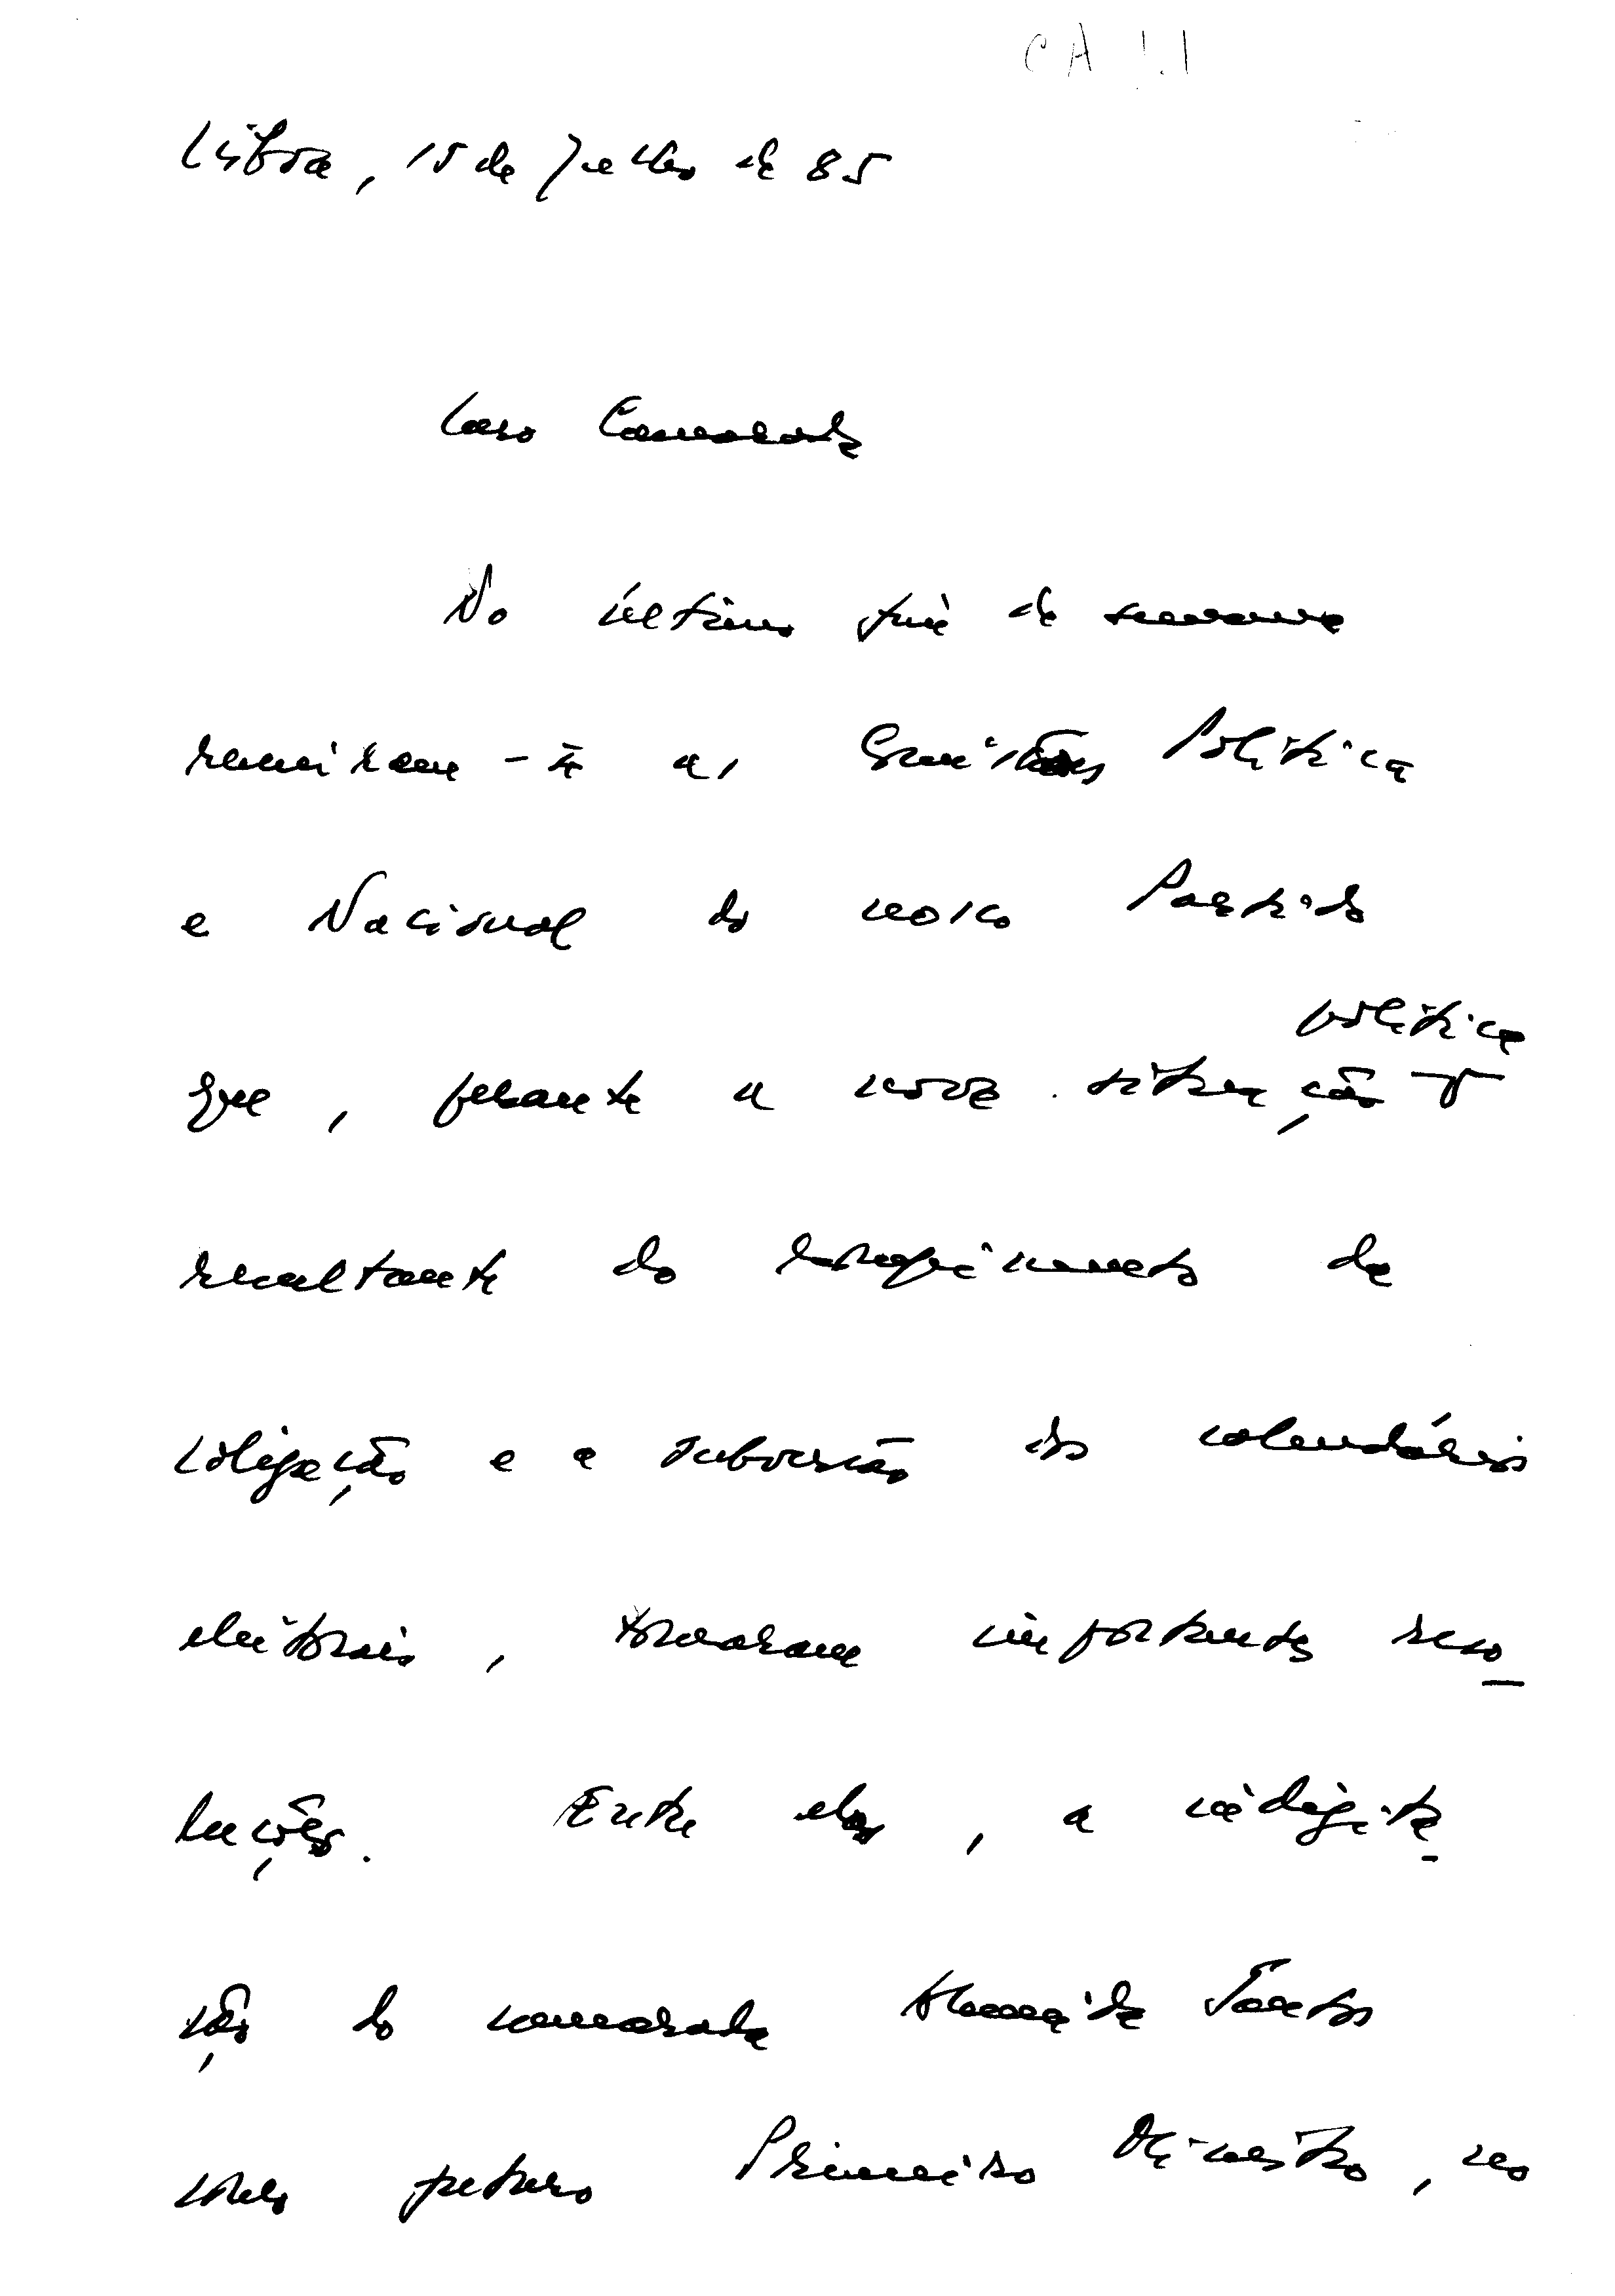 Lisboa, 15 de Julho de 85
Caro Camarada
No último fim de semana
reuniram-se as Comissões Política
e Nacional do nosso Partido
política
que, perante a nova situação
resultante do rompimento da
coligação e a subversão do calendário
eleitoral, tomaram importantes reso
luções. Entre elas, a indigita
ção do camarada Almeida Santos
como futuro Primeiro Ministro, no